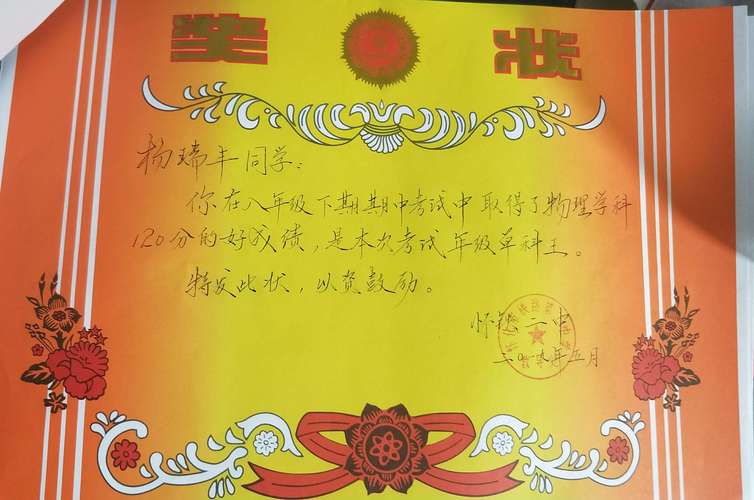 奖状
杨瑞丰同学：
你在八年级下期期中考试中取得了物理学科
120分的好成绩，是本次考试年级单科王。
特发此状，以资鼓励。
怀铁二中
二〇一九年五月